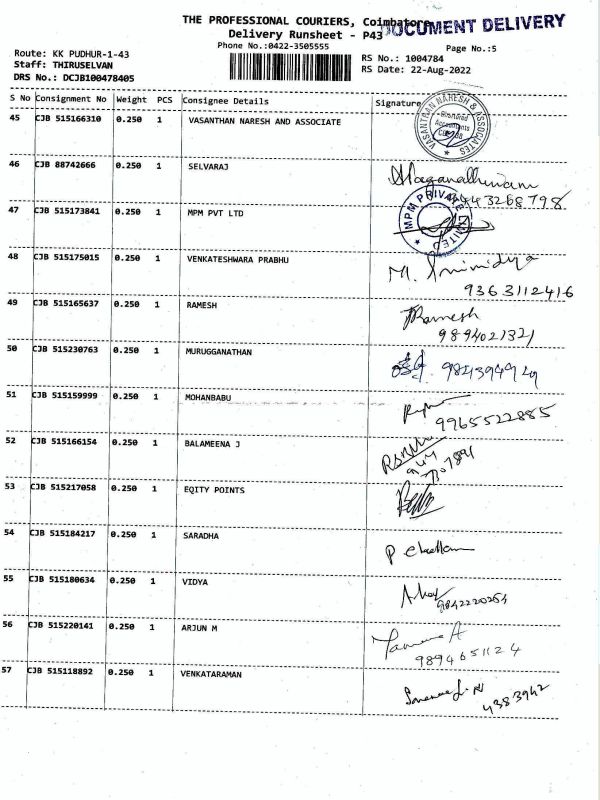 THE PROFESSIONAL COURIERS, Coimbatore
DOCUMENT DELIVERY
Delivery Runsheet - P43
Phone No.:0422-3505555
Page No.:5
Route: KK PUDHUR-1-43
Staff: THIRUSELVAN
DRS No.: DCJB100478405
RS No.: 1004784
RS Date: 22-Aug-2022
S No Consignment No Weight PCS Consignee Details Signature
45 CJB 515166310 0.250 1 VASANTHAN NARESH AND ASSOCIATE
VASANTHAN NARESH & ASSOCIATES
Chartered
Accountants
46 CJB 88742666 0.250 1 SELVARAJ
47 CJB 515173841 0.250 1 MPM PVT LTD
MPM PRIVATE LIMITED
48 CJB 515175015 0.250 1 VENKATESHWARA PRABHU
9363112416
49 CJB 515165637 0.250 1 RAMESH
Ramesh
9894021321
50 CJB 515230763 0.250 1 MURUGGANATHAN
51 CJB 515159999 0.250 1 MOHANBABU
9965522885
52 CJB 515166154 0.250 1 BALAMEENA J
53 CJB 515217058 0.250 1 EQITY POINTS
54 CJB 515184217 0.250 1 SARADHA
55 CJB 515180634 0.250 1 VIDYA
9842220264
56 CJB 515220141 0.250 1 ARJUN M
9894651124
57 CJB 515118892 0.250 1 VENKATARAMAN
4383942